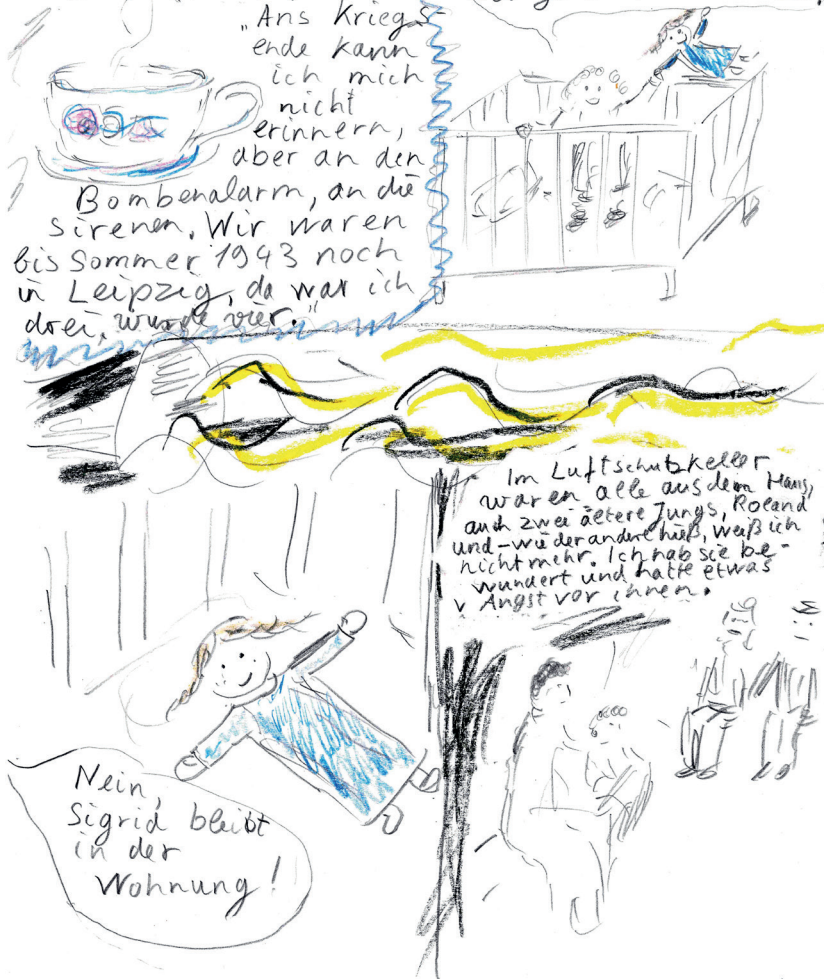 „Ans Kriegs-
ende kann
ich mich
nicht
erinnern,
aber an den
Bombenalarm, an die
Sirenen. Wir waren
bis Sommer 1943 noch
in Leipzig, da war ich
drei, wurde vier.“
Im Luftschutzkeller
waren alle aus dem Haus,
auch zwei ältere Jungs, Roland
und – wie der andere hieß, weiß ich
nicht mehr. Ich hab sie be-
wundert und hatte etwas
Angst vor ihnen.
Nein,
Sigrid bleibt
in der
Wohnung!